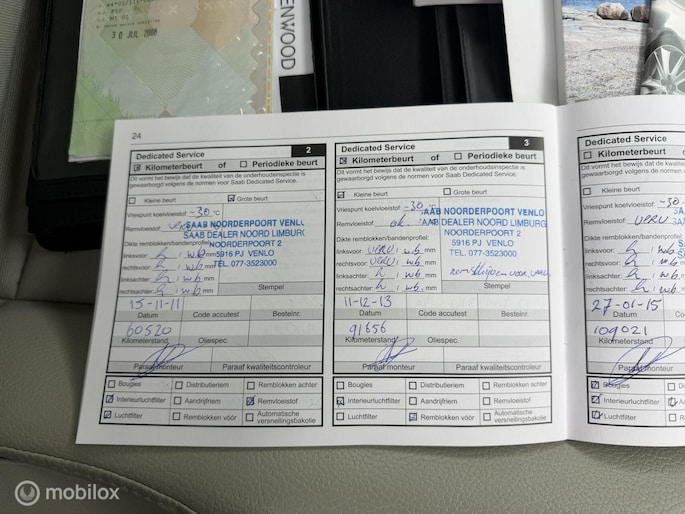 30 JUL 2008
ENWOOD
24
Dedicated Service
2
Kilometerbeurt of Periodieke beurt
Dit vormt het bewijs dat de kwaliteit van de onderhoudsinspectie is
gewaarborgd volgens de normen voor Saab Dedicated Service.
Kleine beurt Grote beurt
Vriespunt koelvloeistof: -30 °C
Remvloeistof:
SAAB NOORDERPOORT VENLO
SAAB DEALER NOORD LIMBURG
NOORDERPOORT 2
5916 PJ VENLO
TEL. 077-3523000
Dikte remblokken/bandenprofiel:
linksvoor: h / wb mm
rechtsvoor: h / wb mm
linksachter: h / wb mm
rechtsachter: h / wb mm
Stempel
15-11-11
Datum Code accutest Bestelnr.
60520
Kilometerstand Oliespec.
Paraaf monteur Paraaf kwaliteitscontroleur
Bougies Distributieriem Remblokken achter
Interieurluchtfilter Aandrijfriem Remvloeistof
Luchtfilter Remblokken vóór Automatische
versnellingsbakolie
Dedicated Service
3
Kilometerbeurt of Periodieke beurt
Dit vormt het bewijs dat de kwaliteit van de onderhoudsinspectie is
gewaarborgd volgens de normen voor Saab Dedicated Service.
Kleine beurt Grote beurt
Vriespunt koelvloeistof: -30 °C
Remvloeistof: ok.
SAAB NOORDERPOORT VENLO
SAAB DEALER NOORD LIMBURG
NOORDERPOORT 2
5916 PJ VENLO
TEL. 077-3523000
Dikte remblokken/bandenprofiel:
linksvoor: VERV / wb. mm
rechtsvoor: VERV / wb. mm
linksachter: h / wb. mm
rechtsachter: h / wb. mm
Stempel
11-12-13
Datum Code accutest Bestelnr.
91656
Kilometerstand Oliespec.
Paraaf monteur Paraaf kwaliteitscontroleur
Bougies Distributieriem Remblokken achter
Interieurluchtfilter Aandrijfriem Remvloeistof
Luchtfilter Remblokken vóór Automatische
versnellingsbakolie
Dedicated Service
Kilometerbeurt
Dit vormt het bewijs dat de k
gewaarborgd volgens de nor
Kleine beurt
Vriespunt koelvloeistof: -30
Remvloeistof: VERV
Dikte remblokken/bandenprofie
linksvoor: h / wb.
rechtsvoor: h / wb.
linksachter: h / wb.
rechtsachter: h / wb.
27-01-15
Datum Cod
109021
Kilometerstand Olies
Paraaf monteur
Bougies Dis
Interieurluchtfilter Aan
Luchtfilter Rem
mobilox